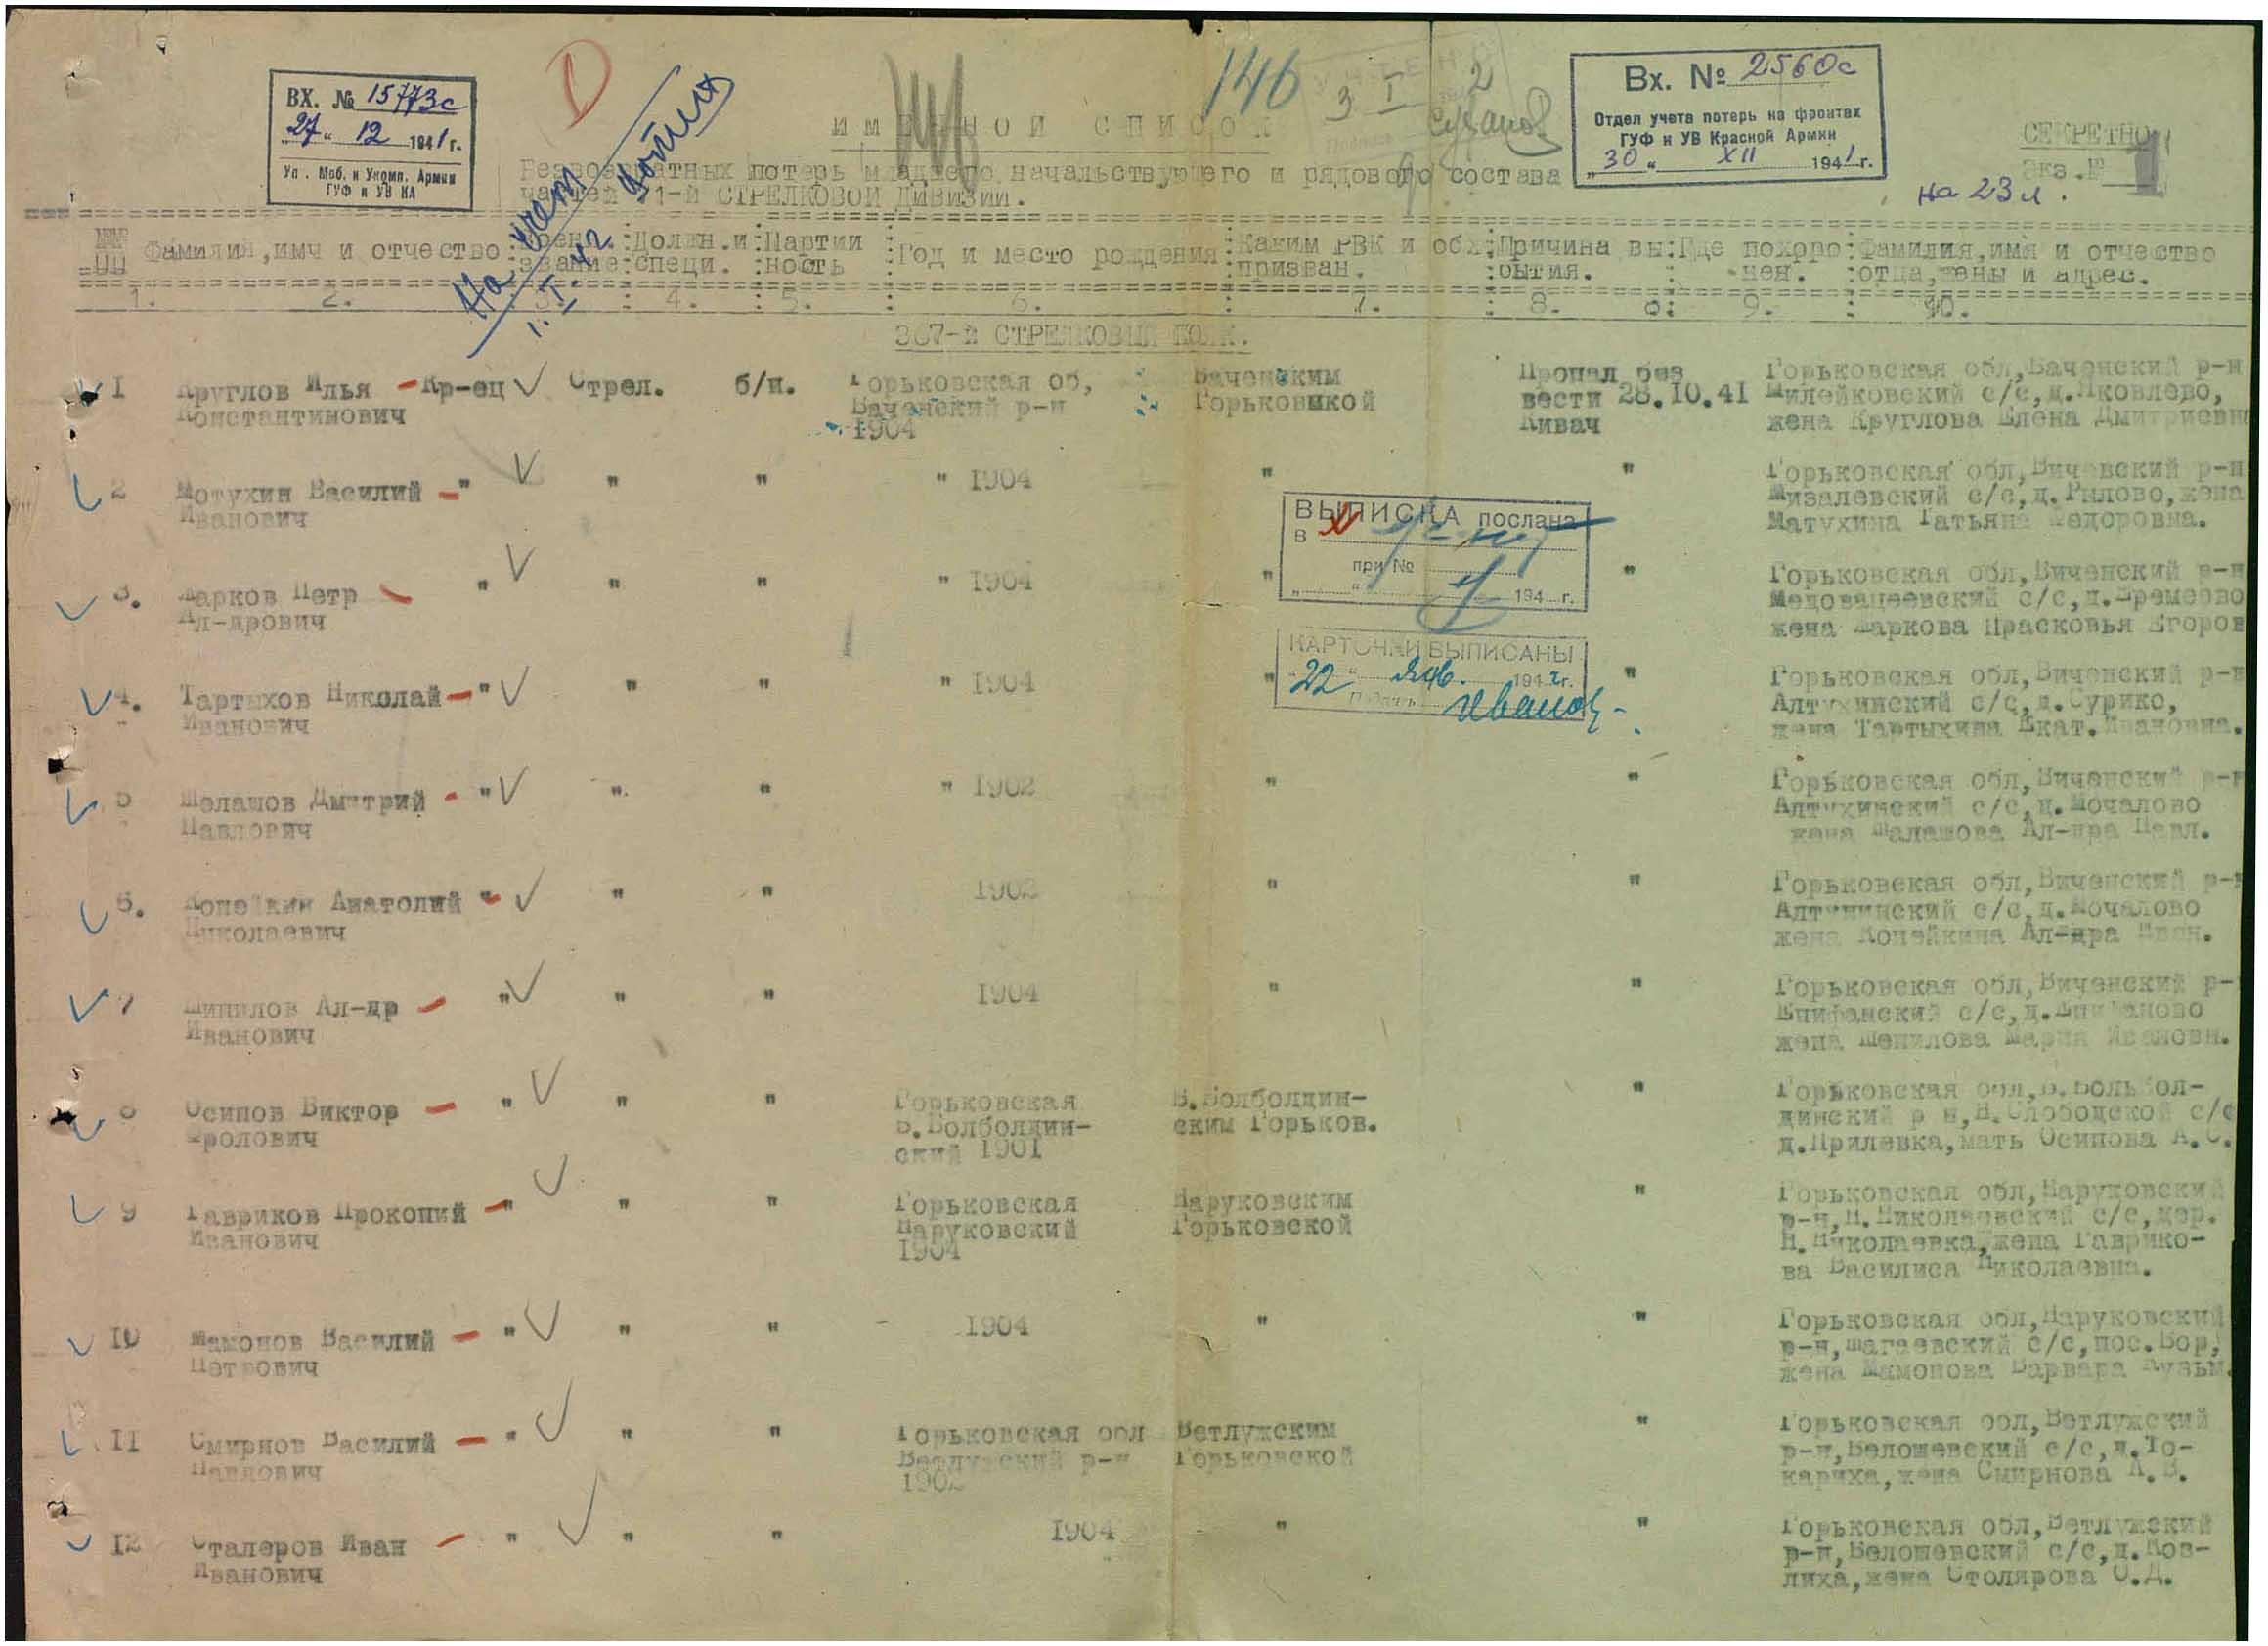 ВХ. № 15773с
„27“ 12 1941 г.
Уп. Моб. и Укомп. Армии
ГУФ и УВ КА
146
3 I 2
Вх. № 2560с
Отдел учета потерь на фронтах
ГУФ и УВ Красной Армии
„30“ XII 1941 г.
СЕКРЕТНО
Экз.№ 1
на 23 л.
На учет
1.I.42
ИМЕННОЙ СПИСОК
Безвозвратных потерь младшего начальствующего и рядового состава
частей 71-й СТРЕЛКОВОЙ ДИВИЗИИ.
№№ пп Фамилия,имя и отчество :Воен. :Должн.и:Партии :Год и место рождения:Каким РВК и обл:Причина вы:Где похоро:Фамилия,имя и отчество
звание:специ. :ность :призван. :бытия. : нен. :отца,жены и адрес.
1. 2. 3. 4. 5. 6. 7. 8. 9. 10.
367-й СТРЕЛКОВЫЙ ПОЛК.
1 Круглов Илья Кр-ец Стрел. б/п. Горьковская об, Ваченским Пропал без Горьковская обл,Ваченский р-н
Константинович Ваченский р-н Горьковской вести 28.10.41 Милейковский с/с,д.Яковлево,
1904 Кивач жена Круглова Елена Дмитриевн
2 Мотухин Василий " " " " 1904 " " Горьковская обл,Вичевский р-н
Иванович Мизалевский с/с,д.Рылово,жена
Матухина Татьяна Федоровна.
3. Марков Петр " " " " 1904 " " Горьковская обл,Виченский р-н
Ал-дрович с/с,д.
жена Маркова Прасковья Егоров
4. Тартыхов Николай " " " " 1904 " " Горьковская обл,Виченский р-н
Иванович Алтухинский с/с,д.Сурико,
жена Тартыхина Екат.Ивановна.
5 Шалашов Дмитрий " " " " 1902 " " Горьковская обл,Виченский р-н
Павлович Алтухинский с/с,д.Мочалово
жена Шалашова Ал-дра Павл.
6. Копейкин Анатолий " " " 1902 " " Горьковская обл,Виченский р-н
Николаевич Алтунинский с/с,д.Мочалово
жена Копейкина Ал-дра Иван.
7 Шипилов Ал-др " " " 1904 " " Горьковская обл,Виченский р-
Иванович Епифанский с/с,д.Епифаново
жена Шепилова Мария Ивановн.
8 Осипов Виктор " " " Горьковская Б.Болболдин- " Горьковская обл,Б.Больбол-
Фролович Б.Болболдин- ским Горьков. динский р н,Н.Слободской с/с
ский 1901 д.Прилевка,мать Осипова А.С.
9 Гавриков Прокопий " " " Горьковская Наруковским " Горьковская обл,Наруковский
Иванович Наруковский Горьковской р-н,Н.Николаевский с/с,дер.
1904 Н.Николаевка,жена Гаврико-
ва Василиса Николаевна.
10 Мамонов Василий " " " 1904 " " Горьковская обл,Наруковский
Петрович р-н,Шагаевский с/с,пос.Бор,
жена Мамонова Варвара Кузьм.
11 Смирнов Василий " " " Горьковская обл Ветлужским " Горьковская обл,Ветлужский
Павлович Ветлужский р-н Горьковской р-н,Белошевский с/с,д.То-
кариха,жена Смирнова А.В.
12 Сталеров Иван " " " 1904 " " Горьковская обл,Ветлужский
Иванович р-н,Белошевский с/с,д.Коз-
лиха,жена Столярова О.Д.
ВЫПИСКА послана
в
при №
„ “ 194 г.
КАРТОЧКИ ВЫПИСАНЫ
22 янв. 1942 г.
Подпись Иванов